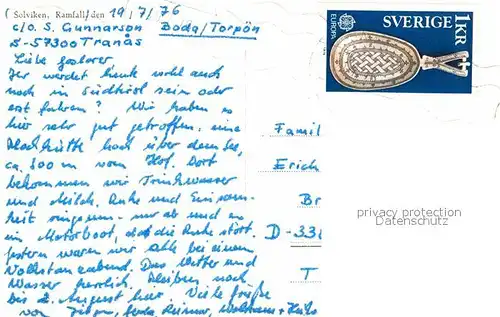 Solviken, Ramfall, den 19/7/76
c/o. S. Gunnarson Boda/Torpön
S-57300 Tranås
Liebe
Ihr werdet heute wohl auch
noch in Südtirol sein oder
erst fahren? Wir haben es
hier sehr gut getroffen, eine
Blockhütte hoch über dem See,
ca. 800 m vom Hof. Dort
bekommen wir Trinkwasser
und Milch. Ruhe und Einsam-
keit ringsum - nur ab und an
ein Motorboot, das die Ruhe stört.
Gestern waren wir alle bei einem
Volkstanzabend. Das Wetter und
Wasser herrlich. Bleiben noch
bis 2. August hier. Viele Grüße
von
EUROPA
SVERIGE
1KR
Famil
Erich
Br
D-33
T
privacy protection
Datenschutz